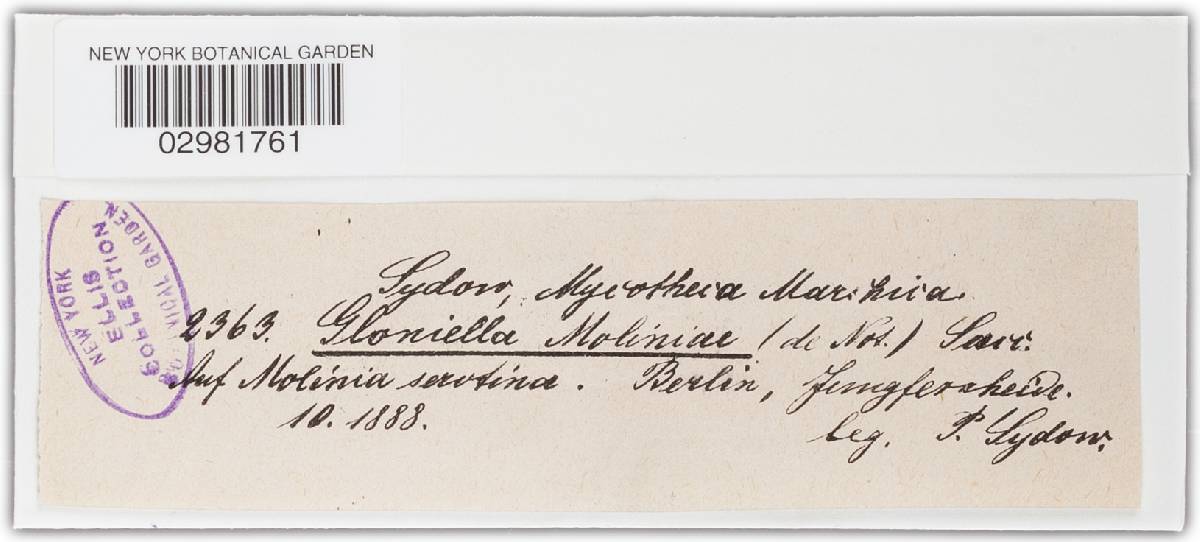 NEW YORK BOTANICAL GARDEN
02981761
NEW YORK
ELLIS
COLLECTION
GARDEN
Sydow, Mycotheca Marchica.
2363. Gloniella Moliniae (de Not.) Sacc.
Auf Molinia serotina. Berlin, Jungfernheide.
10. 1888.
leg. P. Sydow.